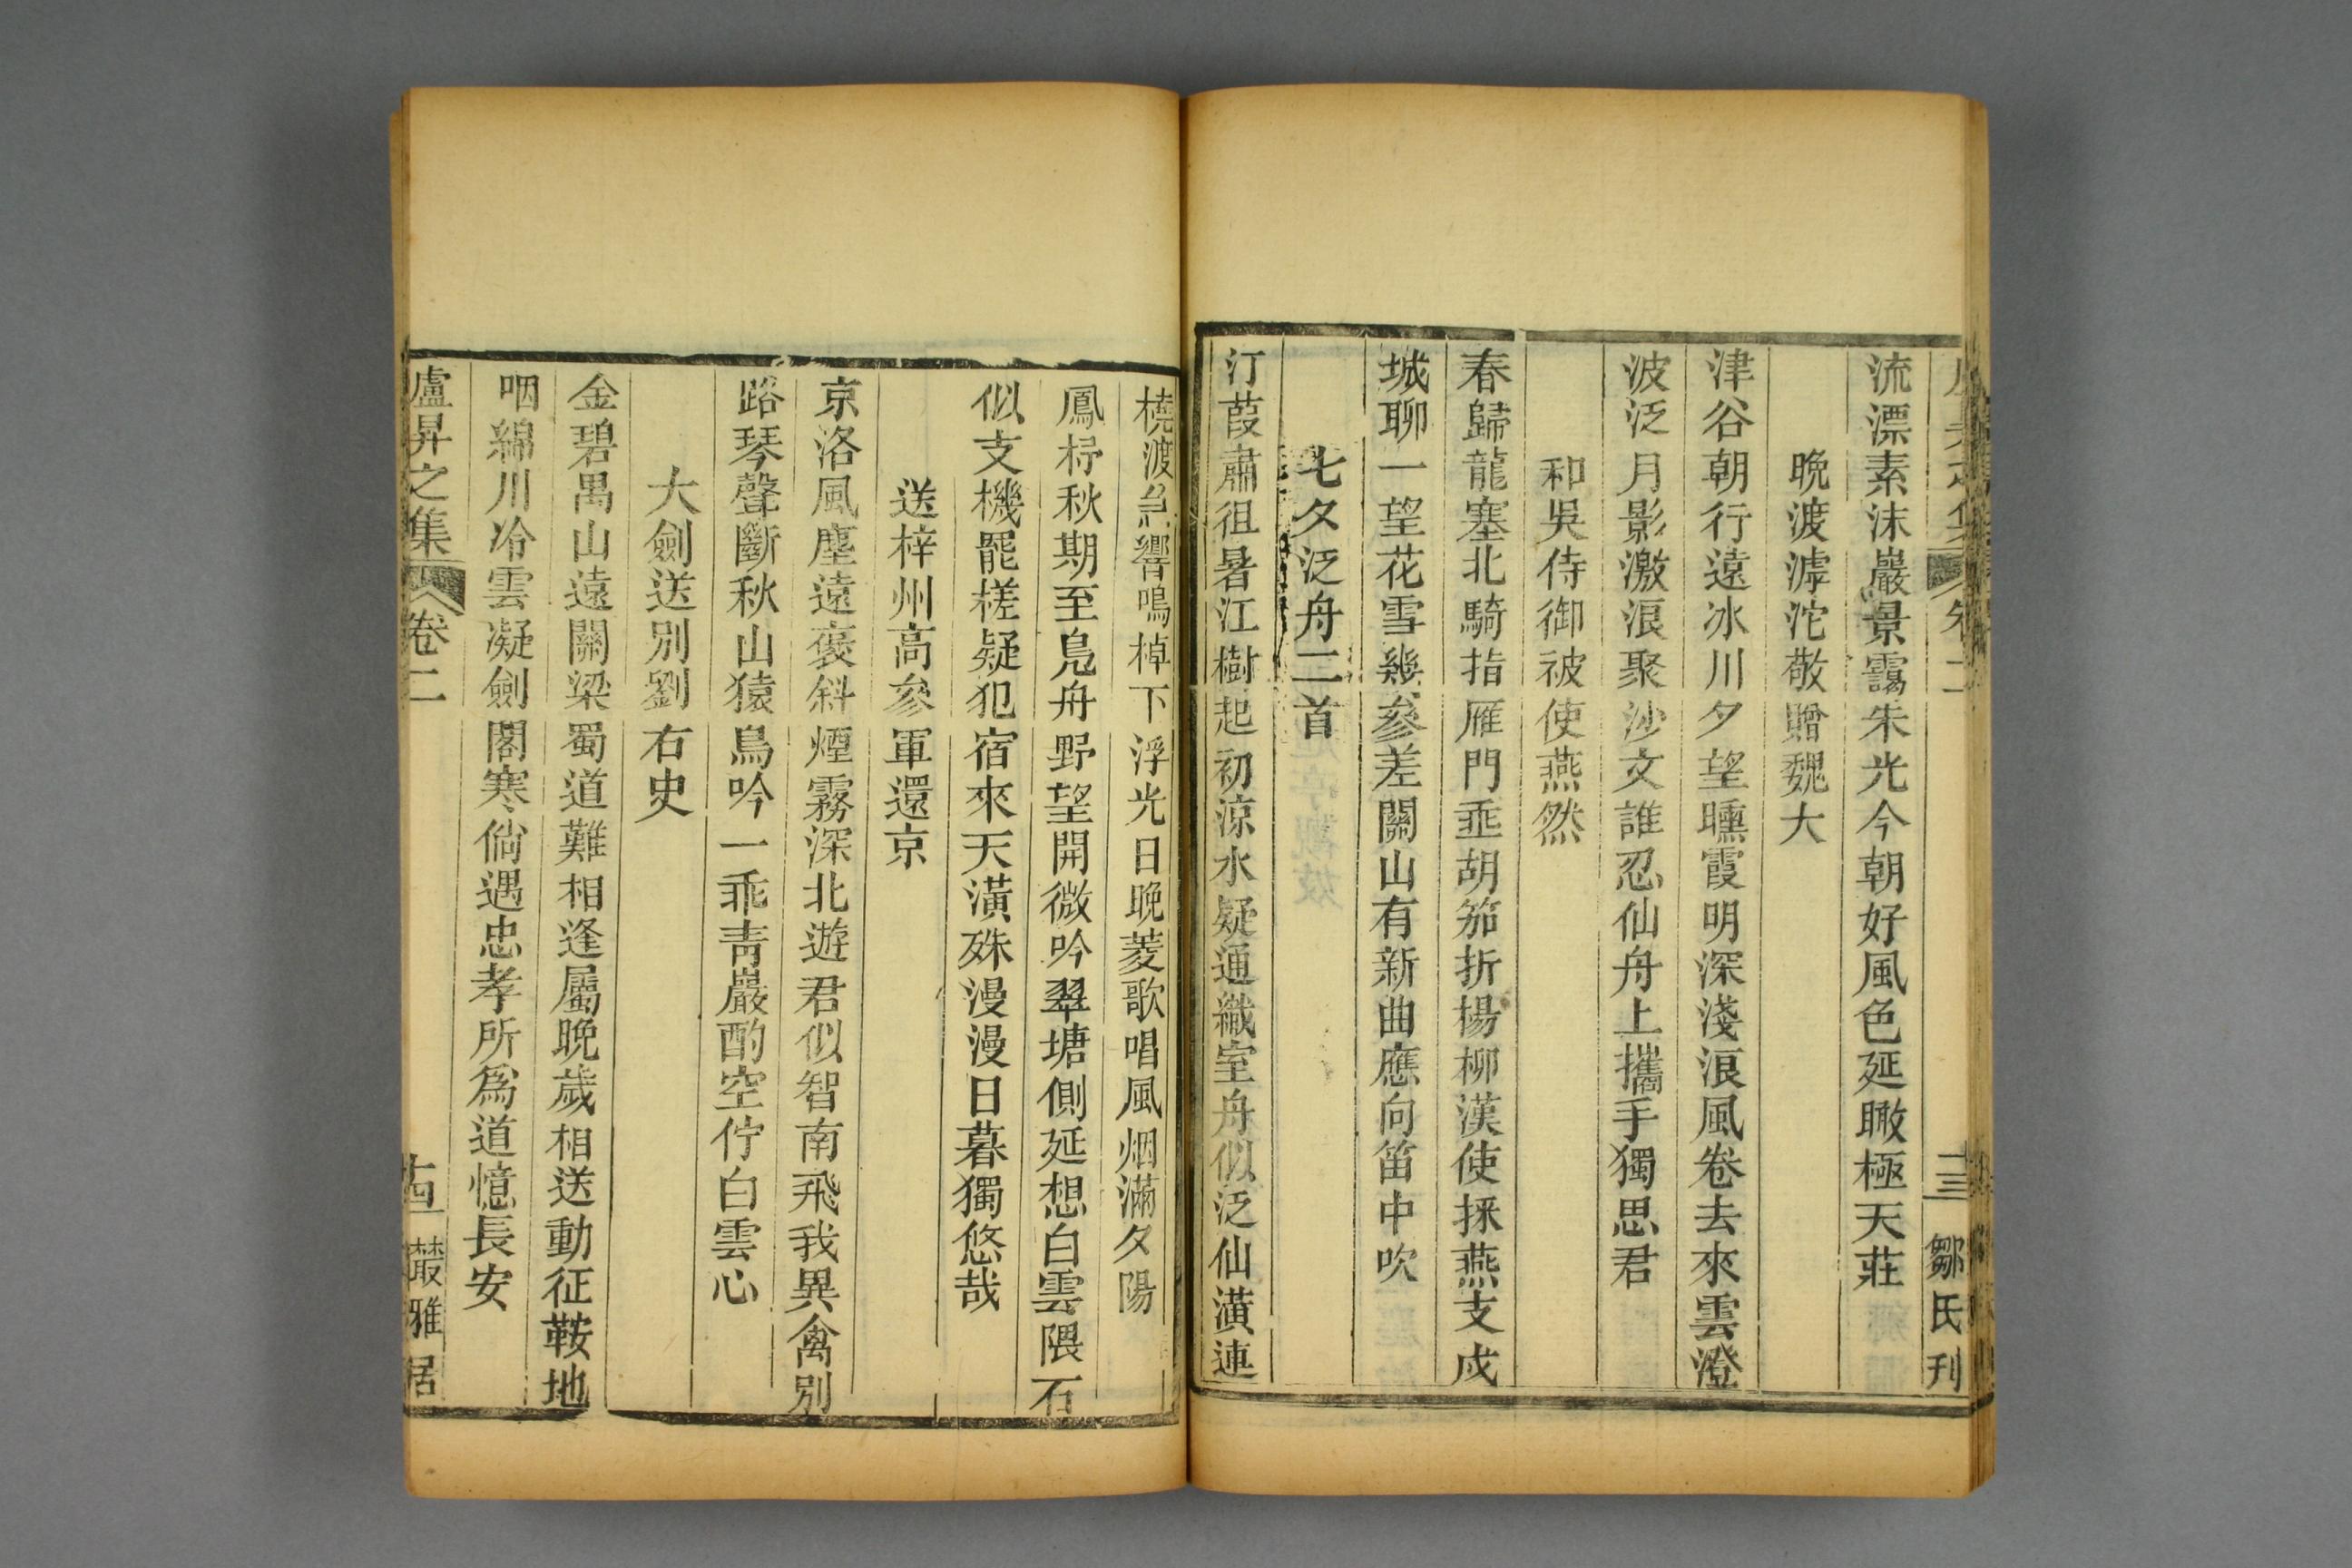 流漂素沫巖景靄朱光今朝好風色延瞰極天莊
晚渡滹沱敬贈魏大
津谷朝行遠冰川夕望曛霞明深淺浪風卷去來雲澄
波泛月影激浪聚沙文誰忍仙舟上攜手獨思君
和吳侍御被使燕然
春歸龍塞北騎指雁門垂胡笳折楊柳漢使採燕支戍
城聊一望花雪幾參差關山有新曲應向笛中吹
七夕泛舟二首
汀葭肅徂暑江樹起初涼水疑通織室舟似泛仙潢連
橈渡急響鳴棹下浮光日晚菱歌唱風烟滿夕陽
鳳杼秋期至鳧舟野望開微吟翠塘側延想白雲隈石
似支機罷槎疑犯宿來天潢殊漫漫日暮獨悠哉
送梓州高參軍還京
京洛風塵遠褒斜煙霧深北遊君似智南飛我異禽別
路琴聲斷秋山猿鳥吟一乖青巖酌空佇白雲心
大劍送別劉右史
金碧禺山遠關梁蜀道難相逢屬晚歲相送動征鞍地
咽綿川冷雲凝劍閣寒倘遇忠孝所為道憶長安
盧昇之集
卷二
十四
叢雅居
卷二
十三
鄒氏刊